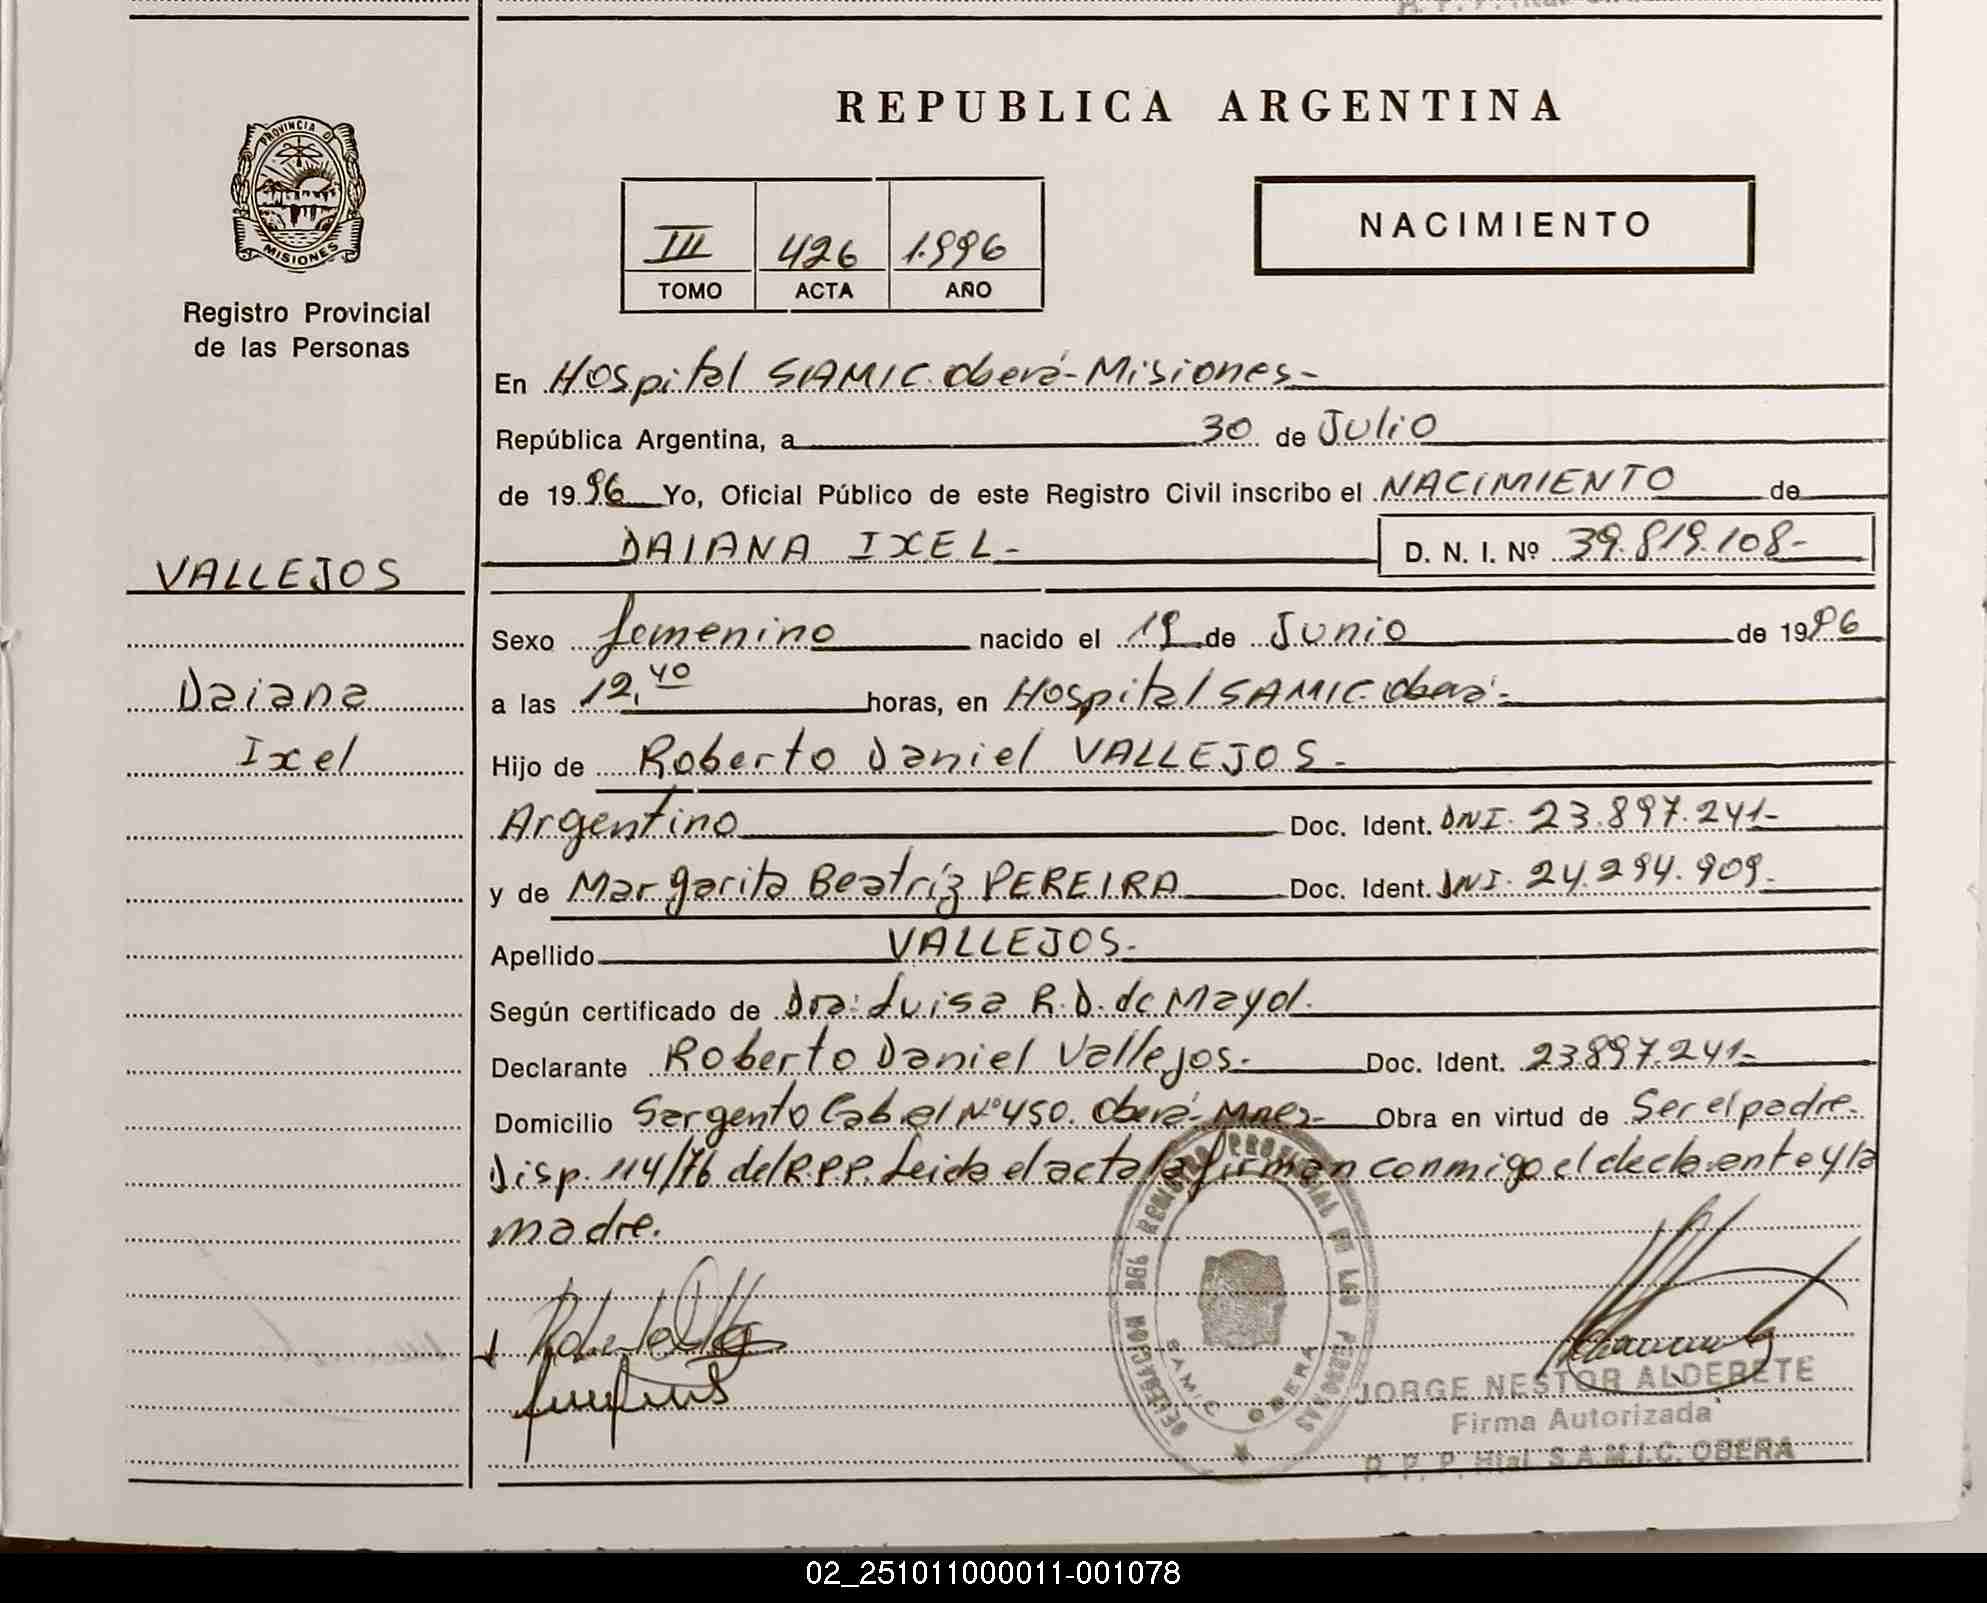 REPUBLICA ARGENTINA
PROVINCIA D
MISIONES
Registro Provincial
de las Personas
III 426 1.996
TOMO ACTA AÑO
NACIMIENTO
En Hospital SAMIC. Oberá-Misiones-
República Argentina, a 30 de Julio
de 1996 Yo, Oficial Público de este Registro Civil inscribo el NACIMIENTO de
DAIANA IXEL- D. N. I. Nº 39.819.108-
VALLEJOS
Daiana
Ixel
Sexo femenino nacido el 19 de Junio de 1996
a las 12,40 horas, en Hospital SAMIC. Oberá-
Hijo de Roberto Daniel VALLEJOS-
Argentino Doc. Ident. DNI. 23.897.241-
y de Margarita Beatríz PEREIRA Doc. Ident. DNI. 24.294.909-
Apellido VALLEJOS-
Según certificado de Dra: Luisa R.D. de Mayol.
Declarante Roberto Daniel Vallejos- Doc. Ident. 23.897.241-
Domicilio Sargento Cabral Nº 450. Oberá-Mnes- Obra en virtud de Ser el padre-
Disp. 114/76 del R.P.P. Leida el acta la firman conmigo el declarante y la
madre.
DELEGACION DEL REGISTRO PROVINCIAL DE LAS PERSONAS
SAMIC OBERA
JORGE NESTOR ALDERETE
Firma Autorizada
R. P. P. Htal. S.A.M.I.C. OBERA
02_251011000011-001078